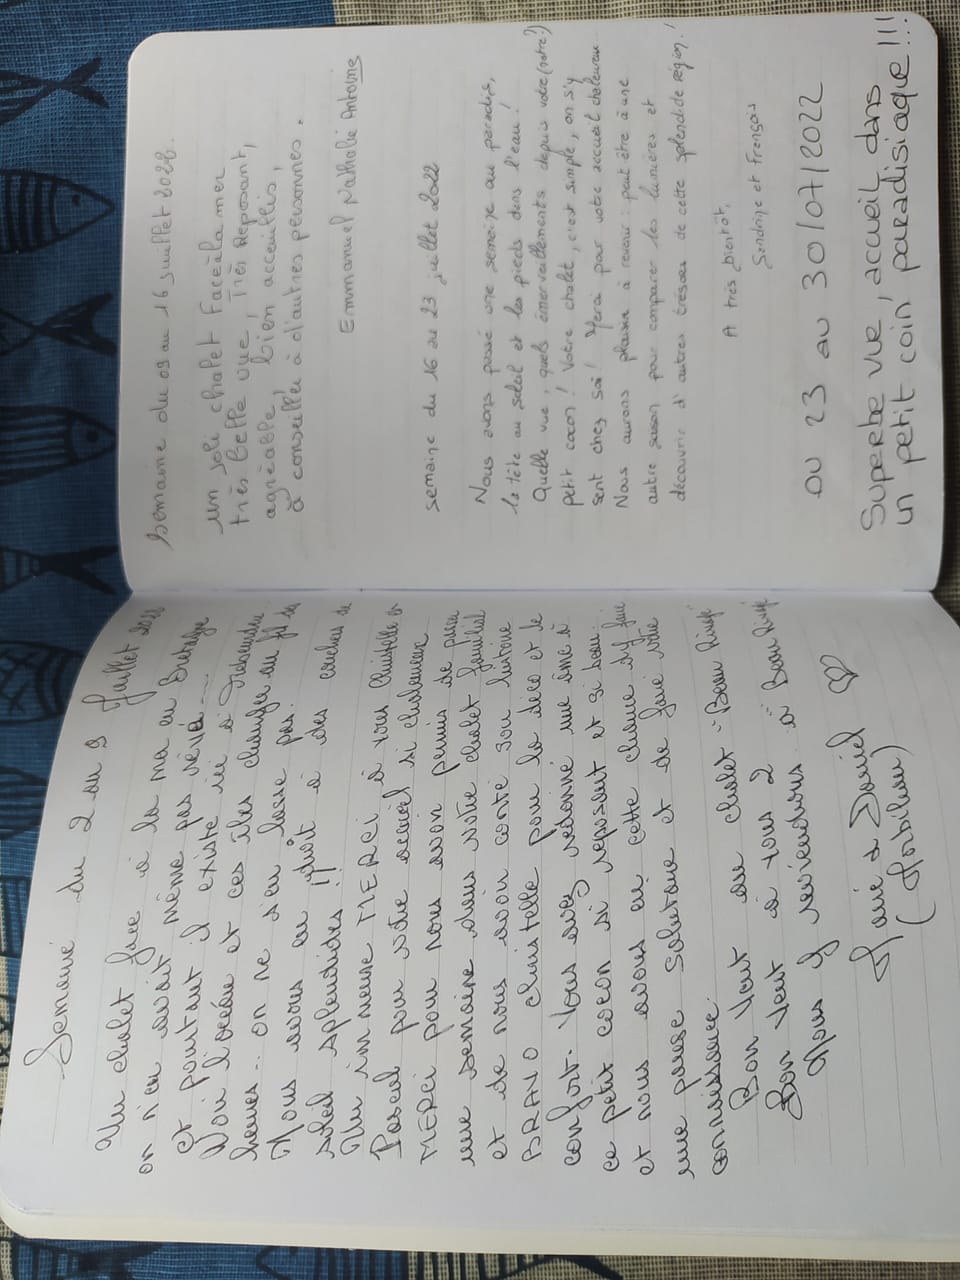 Semaine du 2 au 9 Juillet 2022
Un chalet face à la mer en Bretagne
on n'en avait même pas rêvé ...
et pourtant il existe ici à Trébeurden
Voir l'océan et ces îles changer au fil des
heures... on ne s'en lasse pas.
Nous avons eu droit à des couchers de
soleil splendides !!
Un immense MERCI à vous Christelle et
Pascal pour votre accueil si chaleureux
MERCI pour nous avoir permis de passer
une semaine dans votre chalet familial
et de nous avoir conté son histoire
BRAVO christelle pour la déco et le
confort. Vous avez redonné une âme à
ce petit cocon si reposant et si beau.
et nous avons eu cette chance d'y faire
une pause Salutaire et de faire votre
connaissance.
Bon vent au chalet "Beau Rivage"
Bon vent à vous 2
Nous y reviendrons à "Beau Rivage"
Marie & Daniel
(Morbihan)
Semaine du 09 au 16 Juillet 2022.
un joli chalet Face à la mer
très belle vue, Très Reposant,
agréable, bien acceuillis,
à conseillé à d'autres personnes.
Emmanuel Nathalie Antoine
semaine du 16 au 23 juillet 2022
Nous avons passé une semaine au paradis,
la tête au soleil et les pieds dans l'eau !
Quelle vue, quels émerveillements depuis votre (notre?)
petit cocon ! Votre chalet, c'est simple, on s'y
sent chez soi ! Merci pour votre accueil chaleureux.
Nous aurons plaisir à revenir : peut être à une
autre saison pour comparer les lumières et
découvrir d'autres trésors de cette splendide région !
A très bientôt,
Sandrine et François
DU 23 au 30/07/2022
Superbe vue, accueil dans
un petit coin paradisiaque !!!